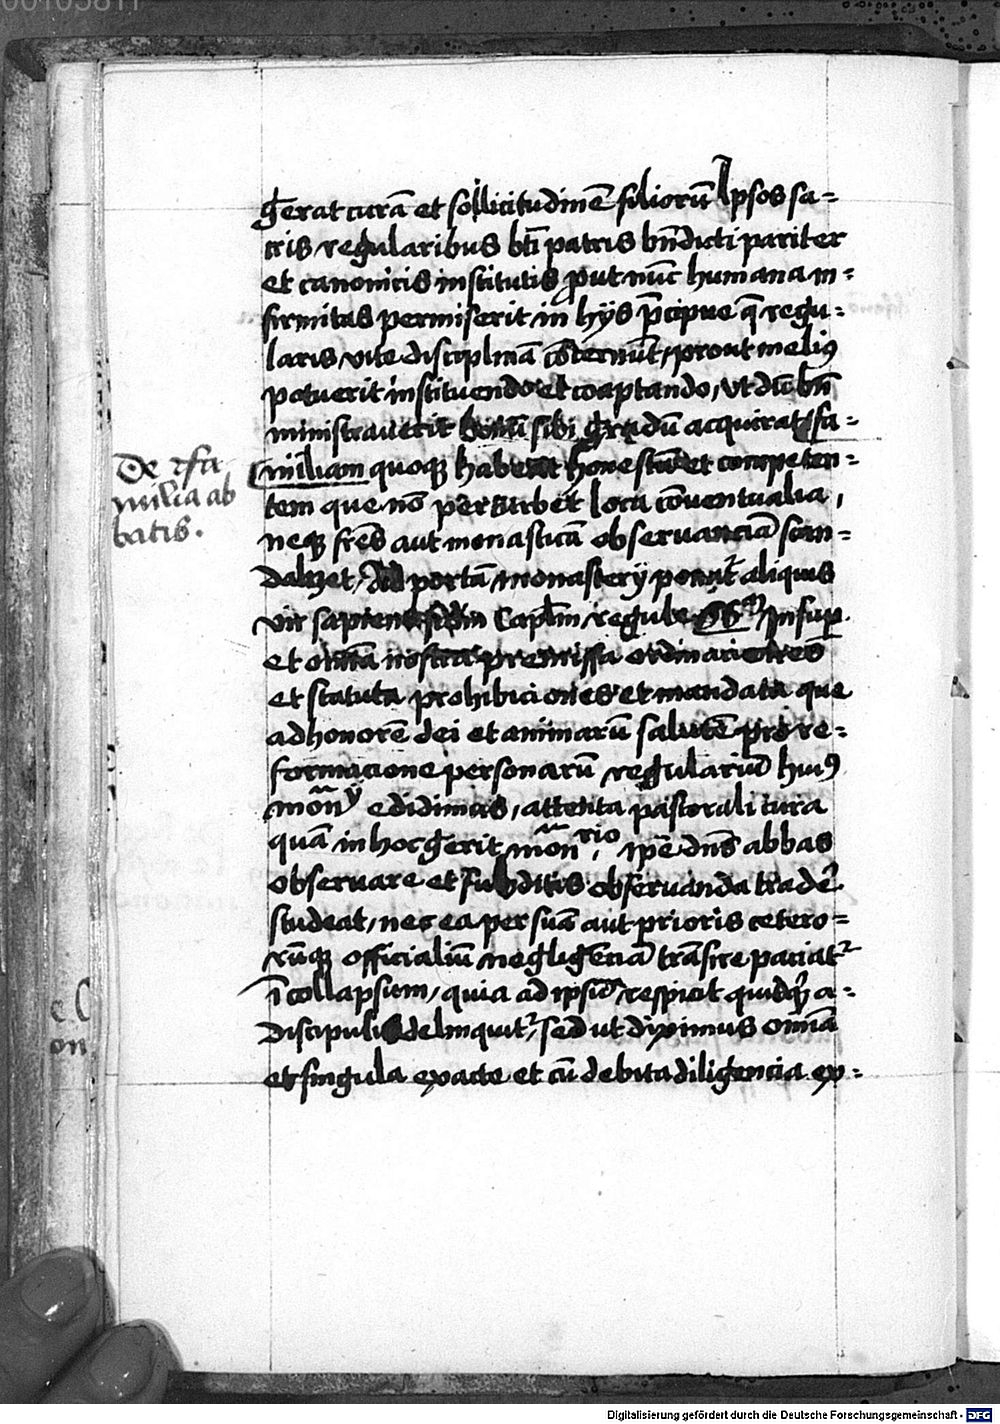 gerat curā et sollicitudinē filiorū Ipsos sa-
cris regularibus bti patris bn̄dicti pariter
et canonicis institutis prout nūc humana in-
firmitas permiserit in hys p̄cipue q̄ regu-
laris vite disciplinā cōcernūt, prout melius
potuerit instituendo et coaptando, ut dū bn̄
ministrauerit bonū sibi gradū acquirat fa-
miliam quoque habeat honestā et competen-
tem que nō perturbet loca cōuentualia,
neque frēs aut monasticā obseruanciā scan-
dalizet, Ad portā monasterij ponat aliquis
vir sapiens scdm Caplm regule 66m Insup
et omīa nostra premissa ordinaciones
et statuta prohibiciones et mandata que
ad honorē dei et animarū salutē pro re-
formacione personarū regulariū huius
mōn̄ij edidimus, attenta pastorali cura
quā in hoc gerit mōn̄rio, ipē dn̄s abbas
obseruare et subditis obseruanda tradēr
studeat, nec ea per suā aut prioris cetero-
rūque officialiū negligēciā trāsire paciat
ī collapsum, quia ad ipsū respicit quidq̄d a
discipulis delinquit, sed ut diximus omīa
et singula exacte et cū debita diligencia ex-
De fa
milia ab
batis.